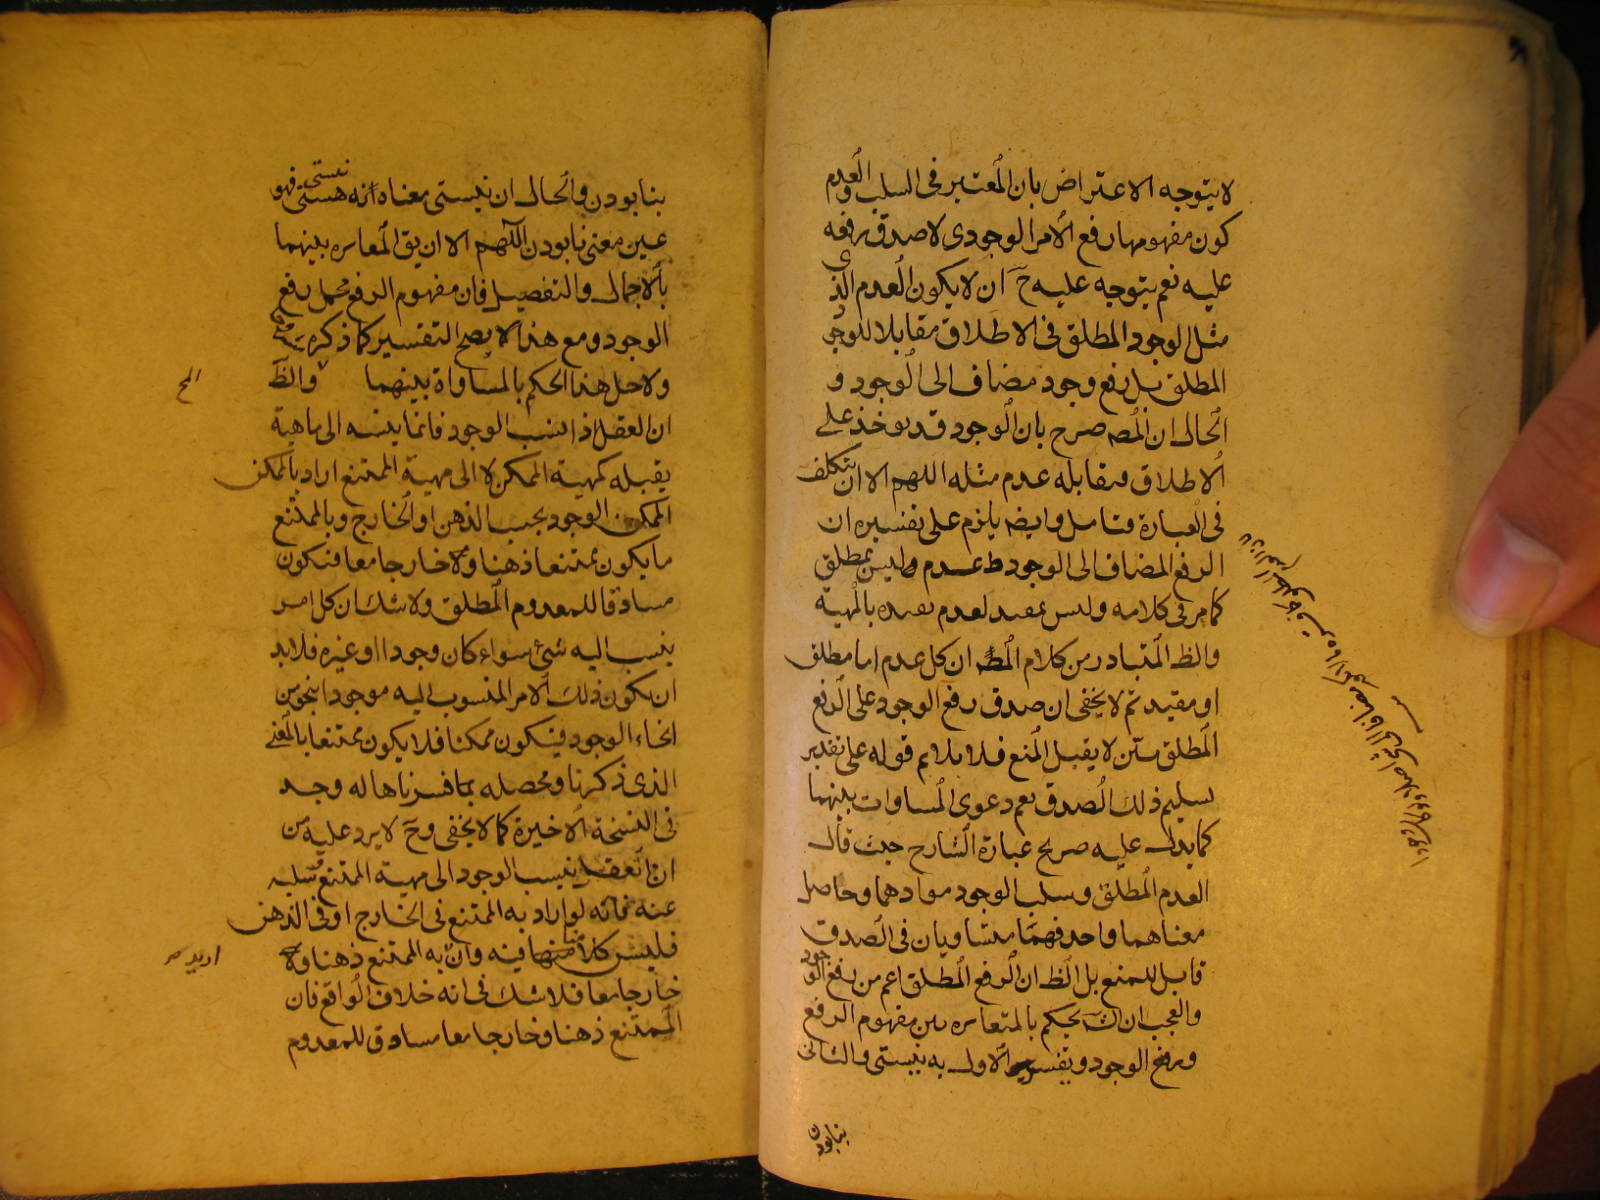 لا يتوجه الاعتراض بان المعتبر فى السلب والعدم
كون مفهومهما رفع الامر الوجودى لا صدق رفعه
عليه نعم يتوجه عليه ح ان لا يكون العدم الذى
مثل الوجود المطلق فى الاطلاق مقابلا للوجود
المطلق بل رفع وجود مضاف الى الوجود و
الحال ان المصه صرح بان الوجود قد يوخذ على
الاطلاق فيقابله عدم مثله اللهم الا ان يتكلف
فى العبارة فتامل وايضه يلزم على تفسيره ان
الرفع المضاف الى الوجود ط عدم وليس بمطلق
كما مر فى كلامه وليس بمقيد لعدم تقيده بالمهية
والظ المتبادر من كلام المصه ان كل عدم اما مطلق
او مقيد ثم لا يخفى ان صدق رفع الوجود على الرفع
المطلق لا يقبل المنع فلا يلايم قوله على تقدير
تسليم ذلك الصدق نعم دعوى المساوات بينهما
كما يدل عليه صريح عبارة الشارح حيث قال
العدم المطلق وسلب الوجود موادهما وحاصل
معناهما واحد فهما متساويان فى الصدق
قابل للمنع بل الظ ان الرفع المطلق اعم من رفع الوجود
والعجب ان الش يحكم بالمتغايره بين مفهوم الرفع
ورفع الوجود ويفسر الاول به نيستى والثانى
بنابودن
بنابودن والحال ان نيستى معناه انه هستى نيستى فهو
عين معنى نابودن اللهم الا ان يق المغايره بينهما
بالاجمال والتفصيل فان مفهوم الرفع مجمل رفع
الوجود ومع هذا لا يصح التفسير كما ذكره
ولاجل هذا الحكم بالمساواة بينهما والظ
الخ
ان العقل اذا نسب الوجود فانما ينسبه الى ماهية
يقبله كمهية الممكن لا الى مهية الممتنع اراد بالممكن
الممكن الوجود بحسب الذهن او الخارج وبالممتنع
ما يكون ممتنعا ذهنا ولا خارجا معا فتكون
مساوقا للمعدوم المطلق ولا شك ان كل امر
ينسب اليه شئ سواء كان وجودا او غيره فلا بد
ان يكون ذلك الامر المنسوب اليه موجودا بنحو من
انحاء الوجود فيكون ممكنا فلا يكون ممتنعا بالمعنى
الذى ذكرنا ومحصله بما فسرناها له وجد
فى النسخة الاخيرة كما لا يخفى وح لا يرد عليه من
ان العقل ينسب الوجود الى مهية الممتنع ثم يسلبه
عنه فانه لو اراد به الممتنع فى الخارج او فى الذهن
فليس كلامنا فيه وان به الممتنع ذهنا و
اريد
خارجا معا فلا شك فى انه خلاف الواقع فان
الممتنع ذهنا وخارجا معا مساوق للمعدوم